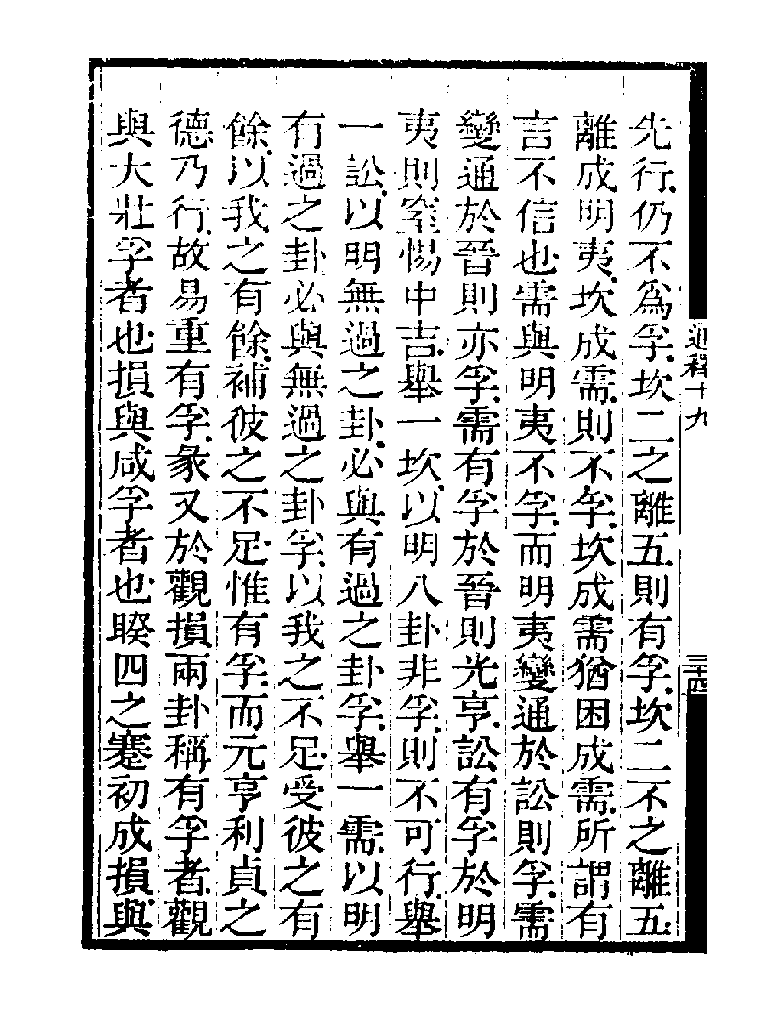 通釋十九
三十四
先行仍不爲孚坎二之離五則有孚坎二不之離五
離成明夷坎成需則不孚坎成需猶困成需所謂有
言不信也需與明夷不孚而明夷變通於訟則孚需
變通於晉則亦孚需有孚於晉則光亨訟有孚於明
夷則窒惕中吉舉一坎以明八卦非孚則不可行舉
一訟以明無過之卦必與有過之卦孚舉一需以明
有過之卦必與無過之卦孚以我之不足受彼之有
餘以我之有餘補彼之不足惟有孚而元亨利貞之
德乃行故易重有孚彖又於觀損兩卦稱有孚者觀
與大壯孚者也損與咸孚者也睽四之蹇初成損與